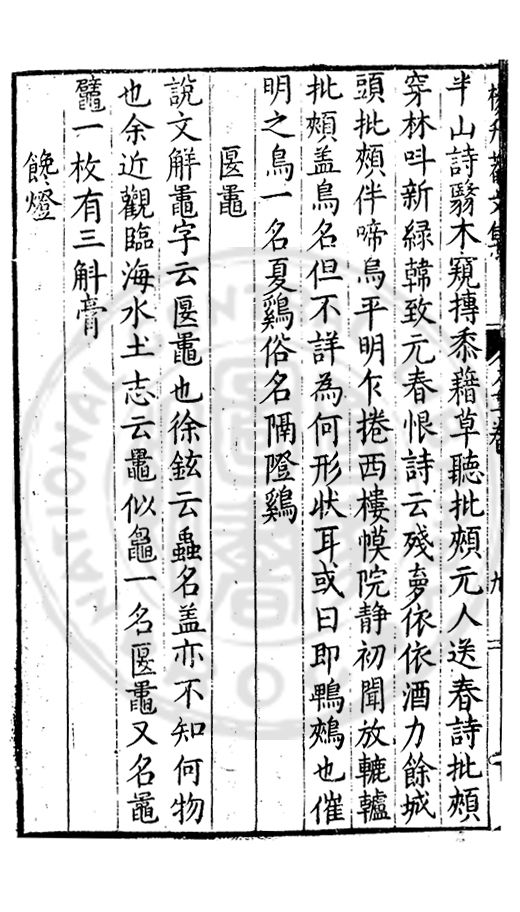 半山詩翳木窺摶黍藉草聽批頰元人送春詩批頰
穿林呌新緑韓致元春恨詩云殘夣依依酒力餘城
頭批頰伴啼烏平明乍捲西樓幙院静初聞放轆轤
批頰盖鳥名但不詳為何形状耳或曰即鴨鵊也催
明之鳥一名夏鷄俗名隔隥鷄
匽鼂
說文解鼂字云匽鼂也徐鉉云蟲名盖亦不知何物
也余近觀臨海水土志云鼂似龜一名匽鼂又名鼂
鼊一枚有三斛膏
饞燈